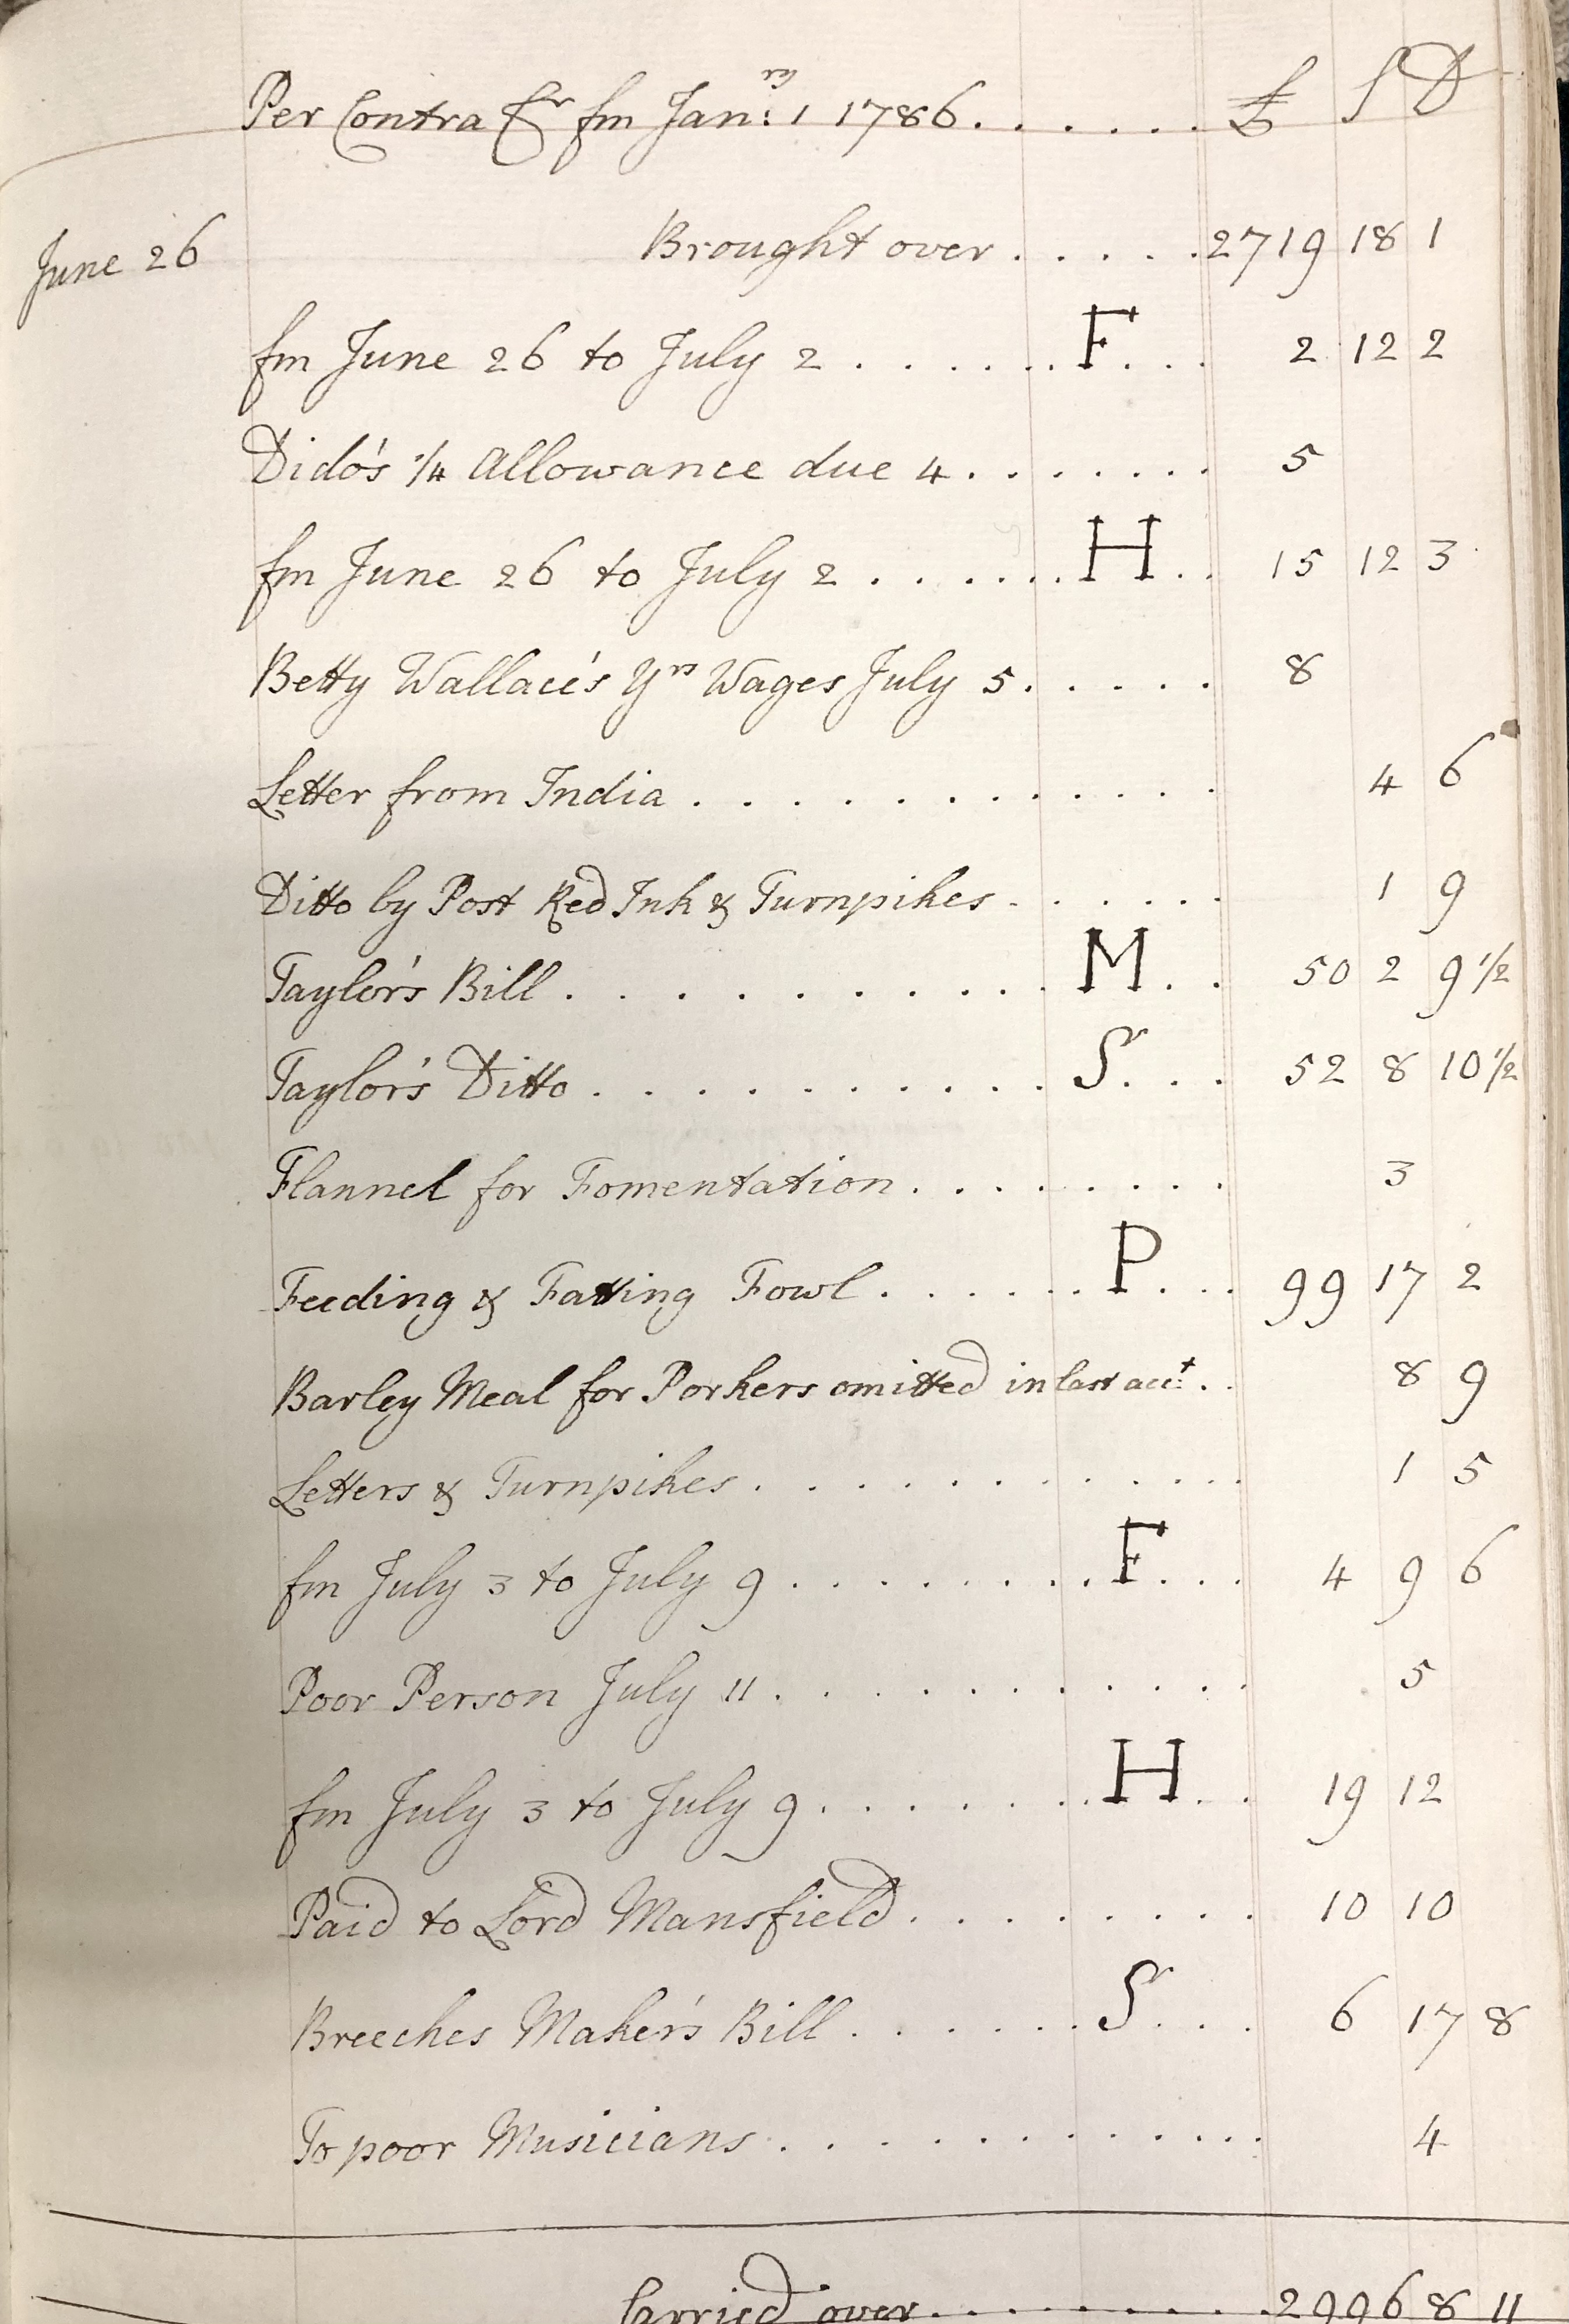 Per Contra Cr fm Jan:ry 1 1786 . . . . . . £ S D
June 26 Brought over . . . . . 2719 18 1
fm June 26 to July 2 . . . . . . F . . . 2 12 2
Dido's 1/4 Allowance due 4 . . . . . . . 5
fm June 26 to July 2 . . . . . . H . . 15 12 3
Betty Wallace's Yrs Wages July 5 . . . . . 8
Letter from India . . . . . . . . . . . . 4 6
Ditto by Post Red Ink & Turnpikes . . . . . . 1 9
Taylor's Bill . . . . . . . . . . M . . 50 2 9 1/2
Taylor's Ditto . . . . . . . . . . S . . . 52 8 10 1/2
Flannel for Fomentation . . . . . . . . 3
Feeding & Fatting Fowl . . . . . . P . . . 99 17 2
Barley Meal for Porkers omitted in last acct . . 8 9
Letters & Turnpikes . . . . . . . . . . . 1 5
fm July 3 to July 9 . . . . . . . . F . . . 4 9 6
Poor Person July 11 . . . . . . . . . . 5
fm July 3 to July 9 . . . . . . . H . . 19 12
Paid to Lord Mansfield . . . . . . . . . 10 10
Breeches Maker's Bill . . . . . . S . . . 6 17 8
To poor Musicians . . . . . . . . . . . 4
Carried over . . . . . . . . . 2996 8 11